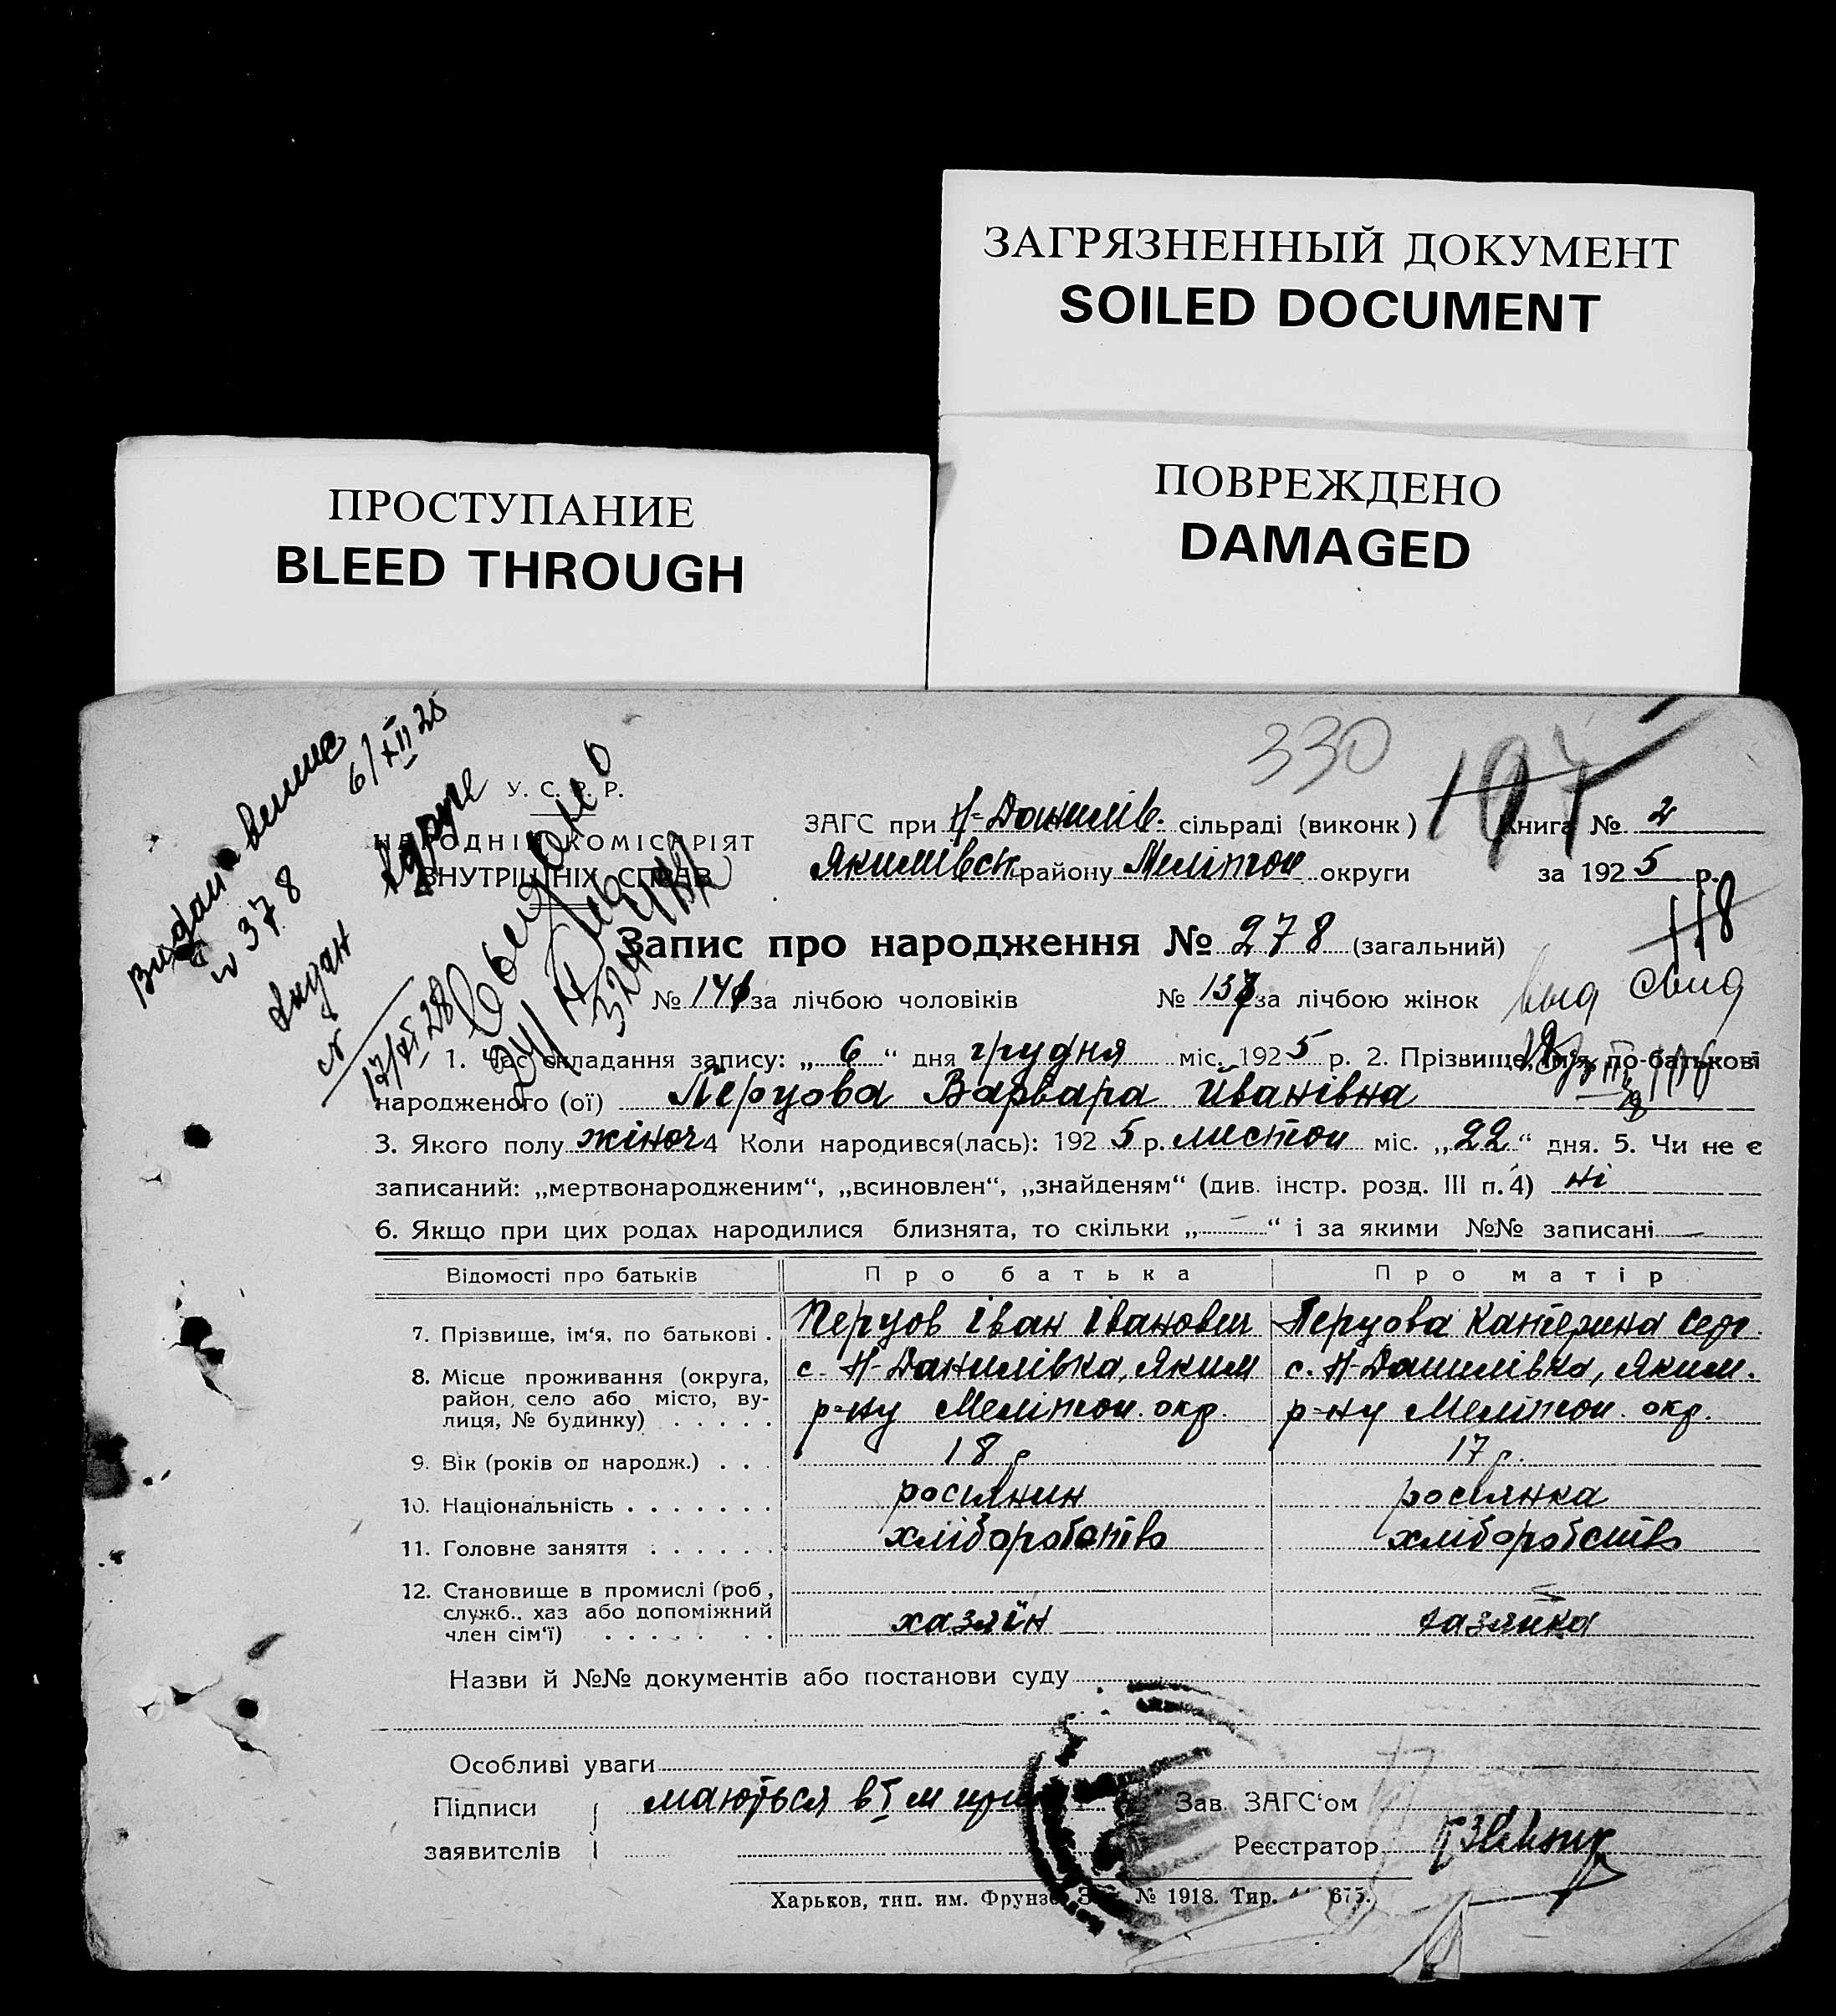 ЗАГРЯЗНЕННЫЙ ДОКУМЕНТ
SOILED DOCUMENT
ПРОСТУПАНИЕ
BLEED THROUGH
ПОВРЕЖДЕНО
DAMAGED
330
197
6/XII 25
У. С. Р. Р.
НАРОДНІЙ КОМІСАРІЯТ
ВНУТРІШНІХ СПРАВ
ЗАГС при Н-Данилів. сільраді (виконк) Книга № 2
Якимівськ району Мелітоп округи за 1925 р.
118
№ 378
Запис про народження № 278 (загальний)
№ 141 за лічбою чоловіків № 137 за лічбою жінок
17/XI 28
1. Час складання запису: „ 6 “ дня грудня міс. 1925 р. 2. Прізвище, ім'я, по-батькові
народженого (ої) Перцова Варвара Іванівна
3. Якого полу жіноч 4 Коли народився(лась): 1925 р. листоп міс. „ 22 “ дня. 5. Чи не є
записаний: „мертвонародженим“, „всиновлен“, „знайденям“ (див. інстр. розд. III п. 4) ні
6. Якщо при цих родах народилися близнята, то скільки „ — “ і за якими №№ записані —
Відомості про батьків Про батька Про матір
7. Прізвище, ім‘я, по батькові . Перцов Іван Іванович Перцова Катерина Серг.
8. Місце проживання (округа, с. Н-Данилівка, Яким с. Н-Данилівка, Яким.
район, село або місто, ву-
лиця, № будинку) . . . . . р-ну Мелітоп. окр. р-ну Мелітоп. окр.
9. Вік (років од народж.) . . . 18 р 17 р.
10. Національність . . . . . . . росіянин росіянка
11. Головне заняття . . . . . . хліборобств хліборобств
12. Становище в промислі (роб,
служб.. хаз або допоміжний
член сім‘ї) . . . . . . . хазяїн хазяйка
Назви й №№ документів або постанови суду
Особливі уваги
Підписи маються в І м прим
Зав. ЗАГС‘ом
заявителів
Реєстратор
Харьков, тип. им. Фрунзе № 1918. Тир. 675.